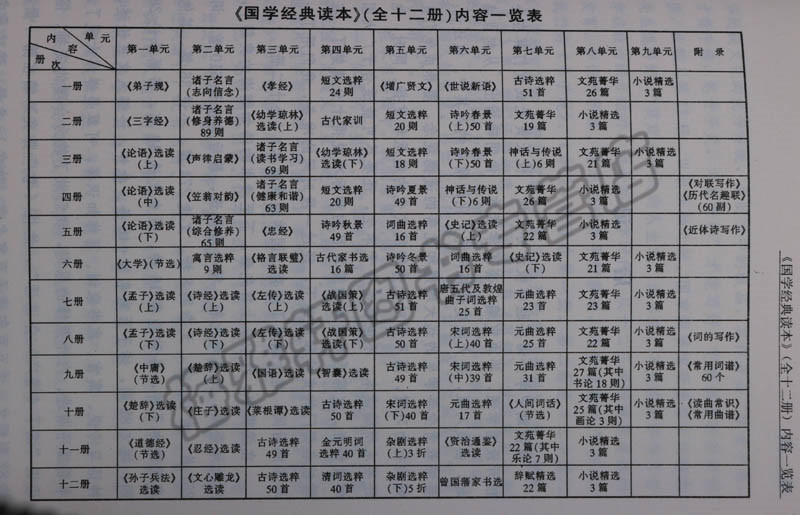 《国学经典读本》(全十二册)内容一览表
内容 单元 册次 第一单元 第二单元 第三单元 第四单元 第五单元 第六单元 第七单元 第八单元 第九单元 附录
一册 《弟子规》 诸子名言(志向信念) 《孝经》 短文选粹24则 《增广贤文》 《世说新语》 古诗选粹51首 文苑菁华26篇 小说精选3篇
二册 《三字经》 诸子名言(修身养德)89则 《幼学琼林》选读(上) 古代家训 短文选粹20则 诗吟春景(上)50首 文苑菁华19篇 小说精选3篇
三册 《论语》选读(上) 《声律启蒙》 诸子名言(读书学习)69则 《幼学琼林》选读(下) 短文选粹18则 诗吟春景(下)50首 神话与传说(上)6则 文苑菁华21篇 小说精选3篇
四册 《论语》选读(中) 《笠翁对韵》 诸子名言(健康和谐)63则 短文选粹20则 诗吟夏景49首 神话与传说(下)6则 文苑菁华26篇 小说精选3篇 《对联写作》《历代名趣联》(60副)
五册 《论语》选读(下) 诸子名言(综合修养)65则 《忠经》 诗吟秋景49首 词曲选粹16首 《史记》选读(上) 文苑菁华22篇 小说精选3篇 《近体诗写作》
六册 《大学》(节选) 寓言选粹9则 《格言联璧》选读 古代家书选16篇 诗吟冬景50首 词曲选粹16首 《史记》选读(下) 文苑菁华21篇 小说精选3篇
七册 《孟子》选读(上) 《诗经》选读(上) 《左传》选读(上) 《战国策》选读(上) 古诗选粹51首 唐五代及敦煌曲子词选粹25首 元曲选粹23首 文苑菁华25篇 小说精选3篇
八册 《孟子》选读(下) 《诗经》选读(下) 《左传》选读(下) 《战国策》选读(下) 古诗选粹50首 宋词选粹(上)40首 元曲选粹25首 文苑菁华22篇 小说精选3篇 《词的写作》
九册 《中庸》(节选) 《楚辞》选读(上) 《国语》选读 《智囊》选读 古诗选粹49首 宋词选粹(中)39首 元曲选粹31首 文苑菁华27篇(其中书论18则) 小说精选3篇 《常用词谱》60个
十册 《楚辞》选读(下) 《庄子》选读 《菜根谭》选读 古诗选粹50首 宋词选粹(下)40首 元曲选粹17首 《人间词话》(节选) 文苑菁华25篇(其中画论3则) 小说精选3篇 《读曲常识》《常用曲谱》
十一册 《道德经》(节选) 《忍经》选读 古诗选粹49首 金元明词选粹40首 杂剧选粹(上)3折 《资治通鉴》选读 文苑菁华22篇(其中乐论7则) 小说精选3篇
十二册 《孙子兵法》选读 《文心雕龙》选读 古诗选粹50首 清词选粹40首 杂剧选粹(下)5折 曾国藩家书选 辞赋精选22篇 小说精选3篇
《国学经典读本》(全十二册)内容一览表